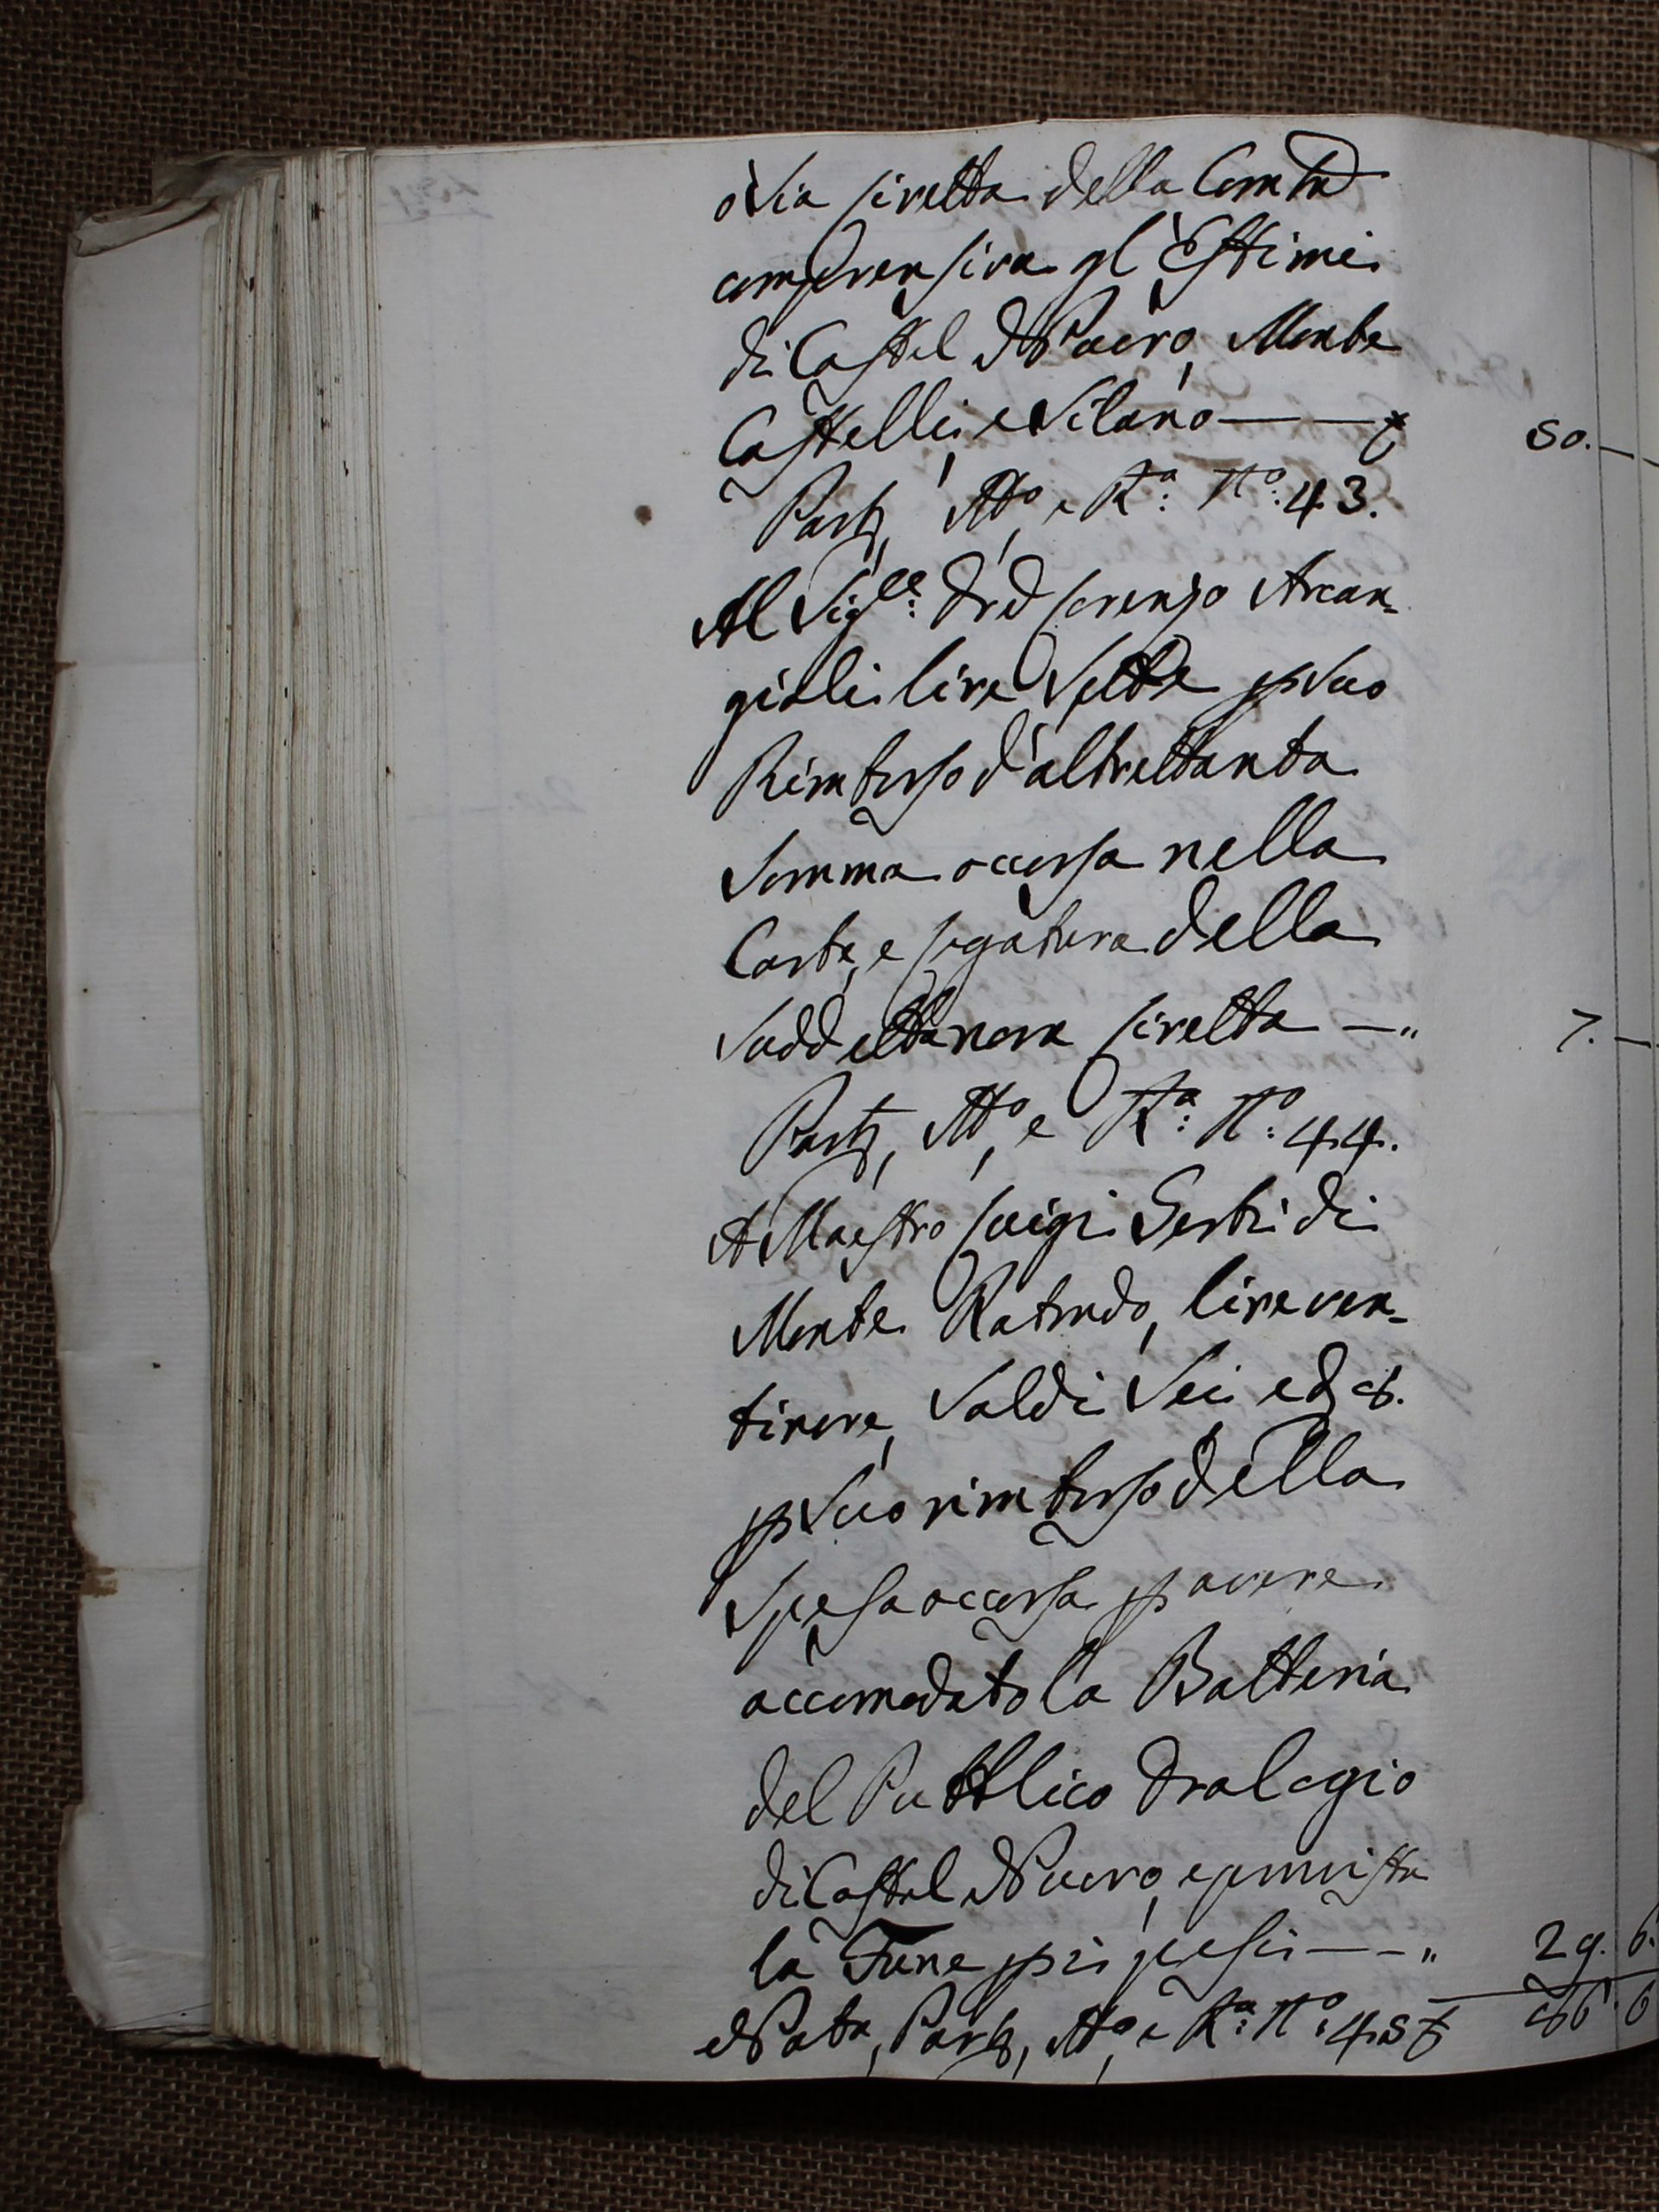 o sia liretta della Com.tà
comprensiva gl'Estimi
di Castel Nuovo, Monte
Castelli, e Silano — — £ 50. —
Part., Att.o, e R.a: N.o: 43.
Al Sig.re: Dre Lorenzo Arcan-
gioli lire Sette p suo
Rimborso d'altrettanta
Somma occorsa nella
Carta, e legatura della
Suddetta nova liretta — „ 7. —
Part., Att.o, e R.a: N.o: 44.
A Maestro Luigi Serbi di
Monte Rotondo, lire ven-
tinove, Soldi Sei e d 8.
p Suo rimborso della
Spesa occorsa p avere
accomodato la Batteria
del Pubblico Orologio
di Castel Nuovo, e provvista
la Fune p i pesi — — „ 29. 6.
Nota, Part., Att.o, e R.a: N.o: 45 £ 86. 6